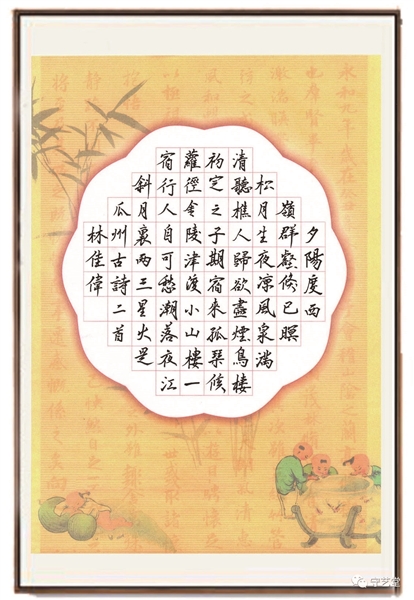 夕陽度西
嶺群壑倏已暝
松月生夜涼風泉滿
清聽樵人歸欲盡煙鳥棲
初定之子期宿來孤琴候
蘿徑金陵津渡小山樓一
宿行人自可愁潮落夜江
斜月裏兩三星火是
瓜州古詩二首
林佳偉